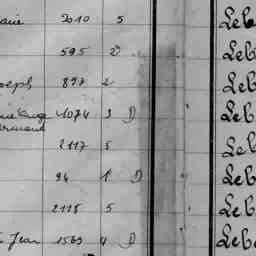 2010 5 Leb
595 2 Leb
oseph 897 2 Leb
1074 3 D Leb
2117 5 Leb
94 1 D Leb
2118 5 Leb
Jean 1563 4 D Leb